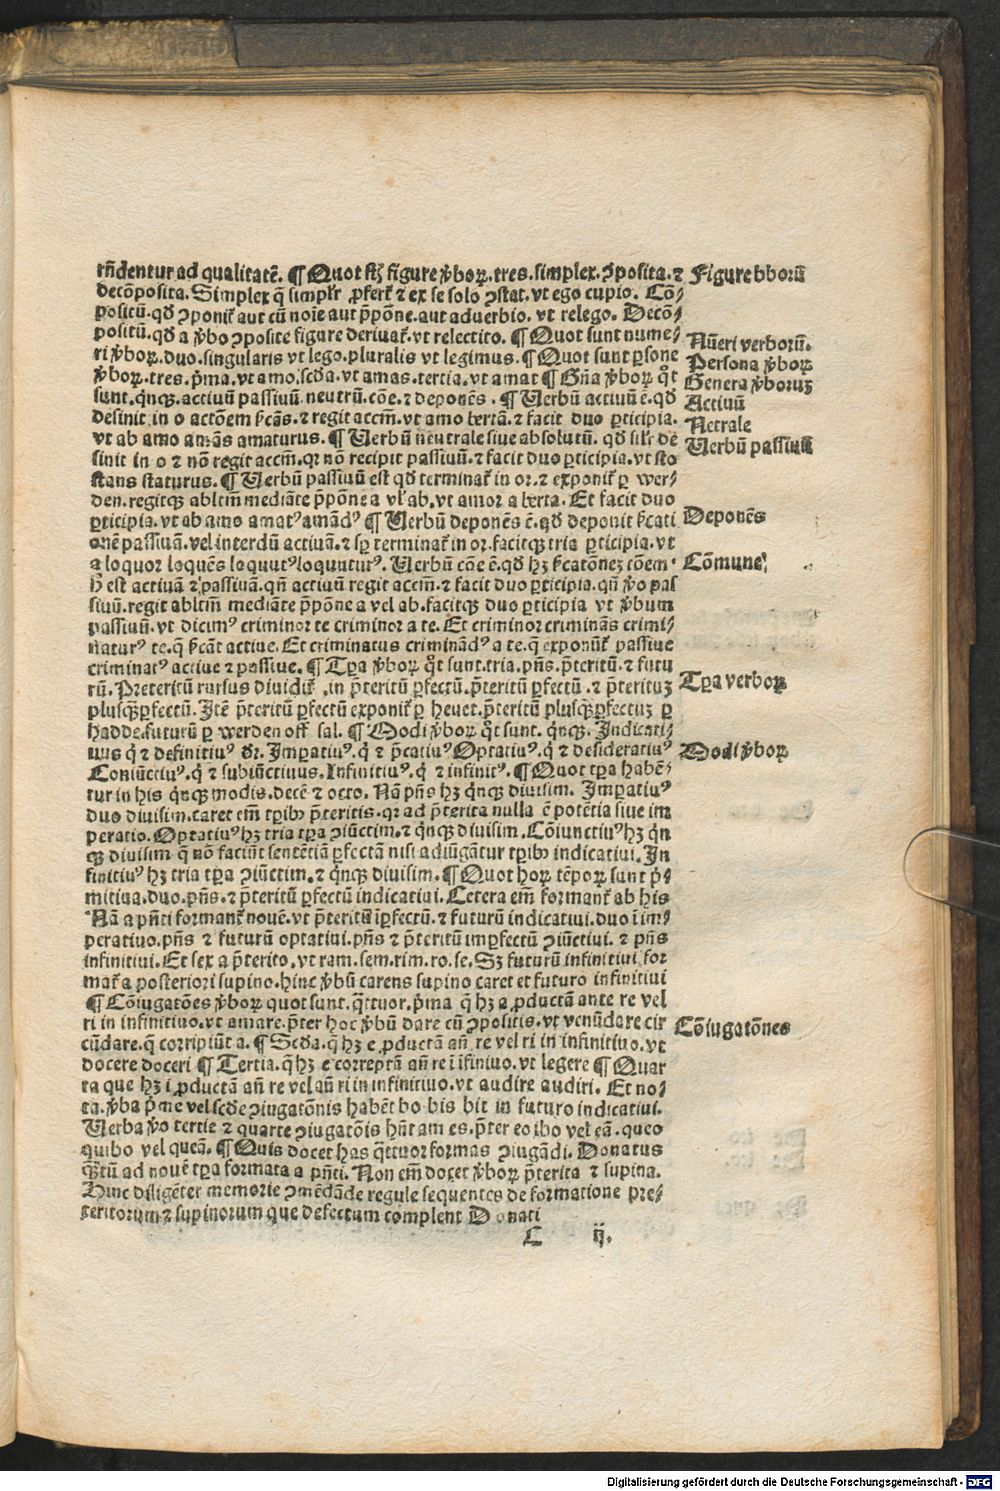 rñdentur ad qualitatē. ¶ Quot sūt figure v̄boꝝ. tres. simplex. ꝯposita. ⁊
decōposita. Simplex q̄ simplr̄ ꝓfert᷑ ⁊ ex se solo ꝯstat. vt ego cupio. Cō⸗
positū. qd̄ ꝯponit᷑ aut cū noīe aut p̄pōne. aut aduerbio. vt relego. Decō⸗
positū. qd̄ a v̄bo ꝯposite figure deriuat᷑. vt relectito. ¶ Quot sunt nume⸗
ri v̄boꝝ. duo. singularis vt lego. pluralis vt legimus. ¶ Quot sunt ꝑsone
v̄boꝝ. tres. p̄ma. vt amo. scd̄a. vt amas. tertia. vt amat ¶ Gn̄a v̄boꝝ qͦt
sunt. qͥnqꝫ. actiuū passiuū neutrū. cōe. ⁊ deponēs. ¶ Uerbū actiuū ē. qd̄
desinit in o actōem s̄cās. ⁊ regit accm̄. vt amo bertā. ⁊ facit duo ꝑticipia.
vt ab amo amās amaturus. ¶ Uerbū neutrale siue absolutū. qd̄ silr̄ de
sinit in o ⁊ nō regit accm̄. qꝛ nō recipit passiuū. ⁊ facit duo ꝑticipia. vt sto
stans staturus. ¶ Uerbū passiuū est qd̄ terminat᷑ in or. ⁊ exponit᷑ ꝑ wer⸗
den. regitqꝫ abltm̄ mediāte p̄pōne a vl̓ ab. vt amor a berta. Et facit duo
ꝑticipia. vt ab amo amatꝰ amādꝰ ¶ Uerbū deponēs ē. qd̄ deponit s̄cati
onē passiuā. vel interdū actiuā. ⁊ sꝑ terminat᷑ in or. facitqꝫ tria ꝑticipia. vt
a loquor loquēs loquutꝰ loquuturꝰ. Uerbū cōe ē. qd̄ hꝫ s̄catōneꝫ cōem.
h̄ est actiuā ⁊ passiuā. qn̄ actiuū regit accm̄. ⁊ facit duo ꝑticipia. qn̄ v̄o pas
siuū. regit abltm̄ mediāte p̄pōne a vel ab. facitqꝫ duo ꝑticipia vt v̄bum
passiuū. vt dicimꝰ criminor te criminor a te. Et criminor criminās crimi⸗
naturꝰ te. q̄ s̄cāt actiue. Et criminatus criminādꝰ a te. q̄ exponūt᷑ passiue
criminatꝰ actiue ⁊ passiue. ¶ Tꝑa v̄boꝝ qͦt sunt. tria. pn̄s. p̄teritū. ⁊ futu
rū. Preteritū rursus diuidit᷑ in p̄teritū ꝑfectū. p̄teritū ꝑfectū. ⁊ p̄terituꝫ
plusqꝫꝑfectū. Itē p̄teritū ꝑfectū exponit᷑ ꝑ heuet. p̄teritū plusqꝫꝑfectuꝫ ꝑ
hadde. futurū ꝑ werden off sal. ¶ Modi v̄boꝝ qͦt sunt. qͥnqꝫ. Indicati⸗
uus qͥ ⁊ definitiuꝰ dr̄. Imꝑatiuꝰ. qͥ ⁊ p̄catiuꝰ Optatiuꝰ. qͥ ⁊ desideratiuꝰ
Coniūctiuꝰ. qͥ ⁊ subiūctiuus. Infinitiuꝰ. qͥ ⁊ infinitꝰ. ¶ Quot tꝑa habē⸗
tur in his qͥnqꝫ modis. decē ⁊ octo. Nā pn̄s hꝫ qͥnqꝫ diuisim. Imꝑatiuꝰ
duo diuisim. caret em̄ tꝑibꝫ p̄teritis. qꝛ ad p̄terita nulla ē potētia siue im
peratio. Optatiuꝰ hꝫ tria tꝑa ꝯiūctim. ⁊ qͥnqꝫ diuisim. Cōiunctiuꝰ hꝫ qͥn
qꝫ diuisim q̄ nō faciūt sentētiā ꝑfectā nisi adiūgātur tꝑibꝫ indicatiui. In
finitiuꝰ hꝫ tria tꝑa ꝯiūctim. ⁊ qͥnqꝫ diuisim. ¶ Quot hoꝝ tēpoꝝ sunt pͥ⸗
mitiua. duo. pn̄s. ⁊ p̄teritū ꝑfectū indicatiui. Cetera em̄ formant᷑ ab his
Nā a pn̄ti formant᷑ nouē. vt p̄teritū īꝑfectū. ⁊ futurū indicatiui. duo ī im⸗
peratiuo. pn̄s ⁊ futurū optatiui. pn̄s ⁊ p̄teritū imꝑfectū ꝯiūctiui. ⁊ pn̄s
infinitiui. Et sex a p̄terito. vt ram. sem. rim. ro. se. Sꝫ futurū infinitiui for
mat᷑ a posteriori supino. hinc v̄bū carens supino caret et futuro infinitiui
¶ Cōiugatōes v̄boꝝ quot sunt. qͣttuor. pͥma q̄ hꝫ a ꝓductā ante re vel
ri in infinitiuo. vt amare. p̄ter hoc v̄bū dare cū ꝯpositis. vt venūdare cir
cūdare. q̄ corripiūt a. ¶ Scd̄a. q̄ hꝫ e ꝓductā an̄ re vel ri in infinitiuo. vt
docere doceri ¶ Tertia. q̄ hꝫ e correptā an̄ re ī īfiniuo. vt legere ¶ Quar
ta que hꝫ i ꝓductā an̄ re vel an̄ ri in infinitiuo. vt audire audiri. Et no⸗
ta. v̄ba pͥme vel scd̄e ꝯiugatōnis habēt bo bis bit in futuro indicatiui.
Uerba v̄o tertie ⁊ quarte ꝯiugatōis hn̄t am es. p̄ter eo ibo vel eā. queo
quibo vel queā. ¶ Quis docet has qͣttuor formas ꝯiugādi. Donatus
qͣꝫtū ad nouē tꝑa formata a pn̄ti. Non em̄ docet v̄boꝝ p̄terita ⁊ supina.
Hinc diligēter memorie ꝯmēdāde regule sequentes de formatione pre⸗
teritorum ⁊ supinorum que defectum complent Donati
C ij.
Figure bborū
Nūeri verborū.
Persona v̄boꝝ
Genera v̄boruꝫ
Actiuū
Netrale
Uerbū passiuū
Deponēs
Cōmune
Tꝑa verboꝝ
Modi v̄boꝝ
Cōiugatōnes
Digitalisierung gefördert durch die Deutsche Forschungsgemeinschaft - DFG